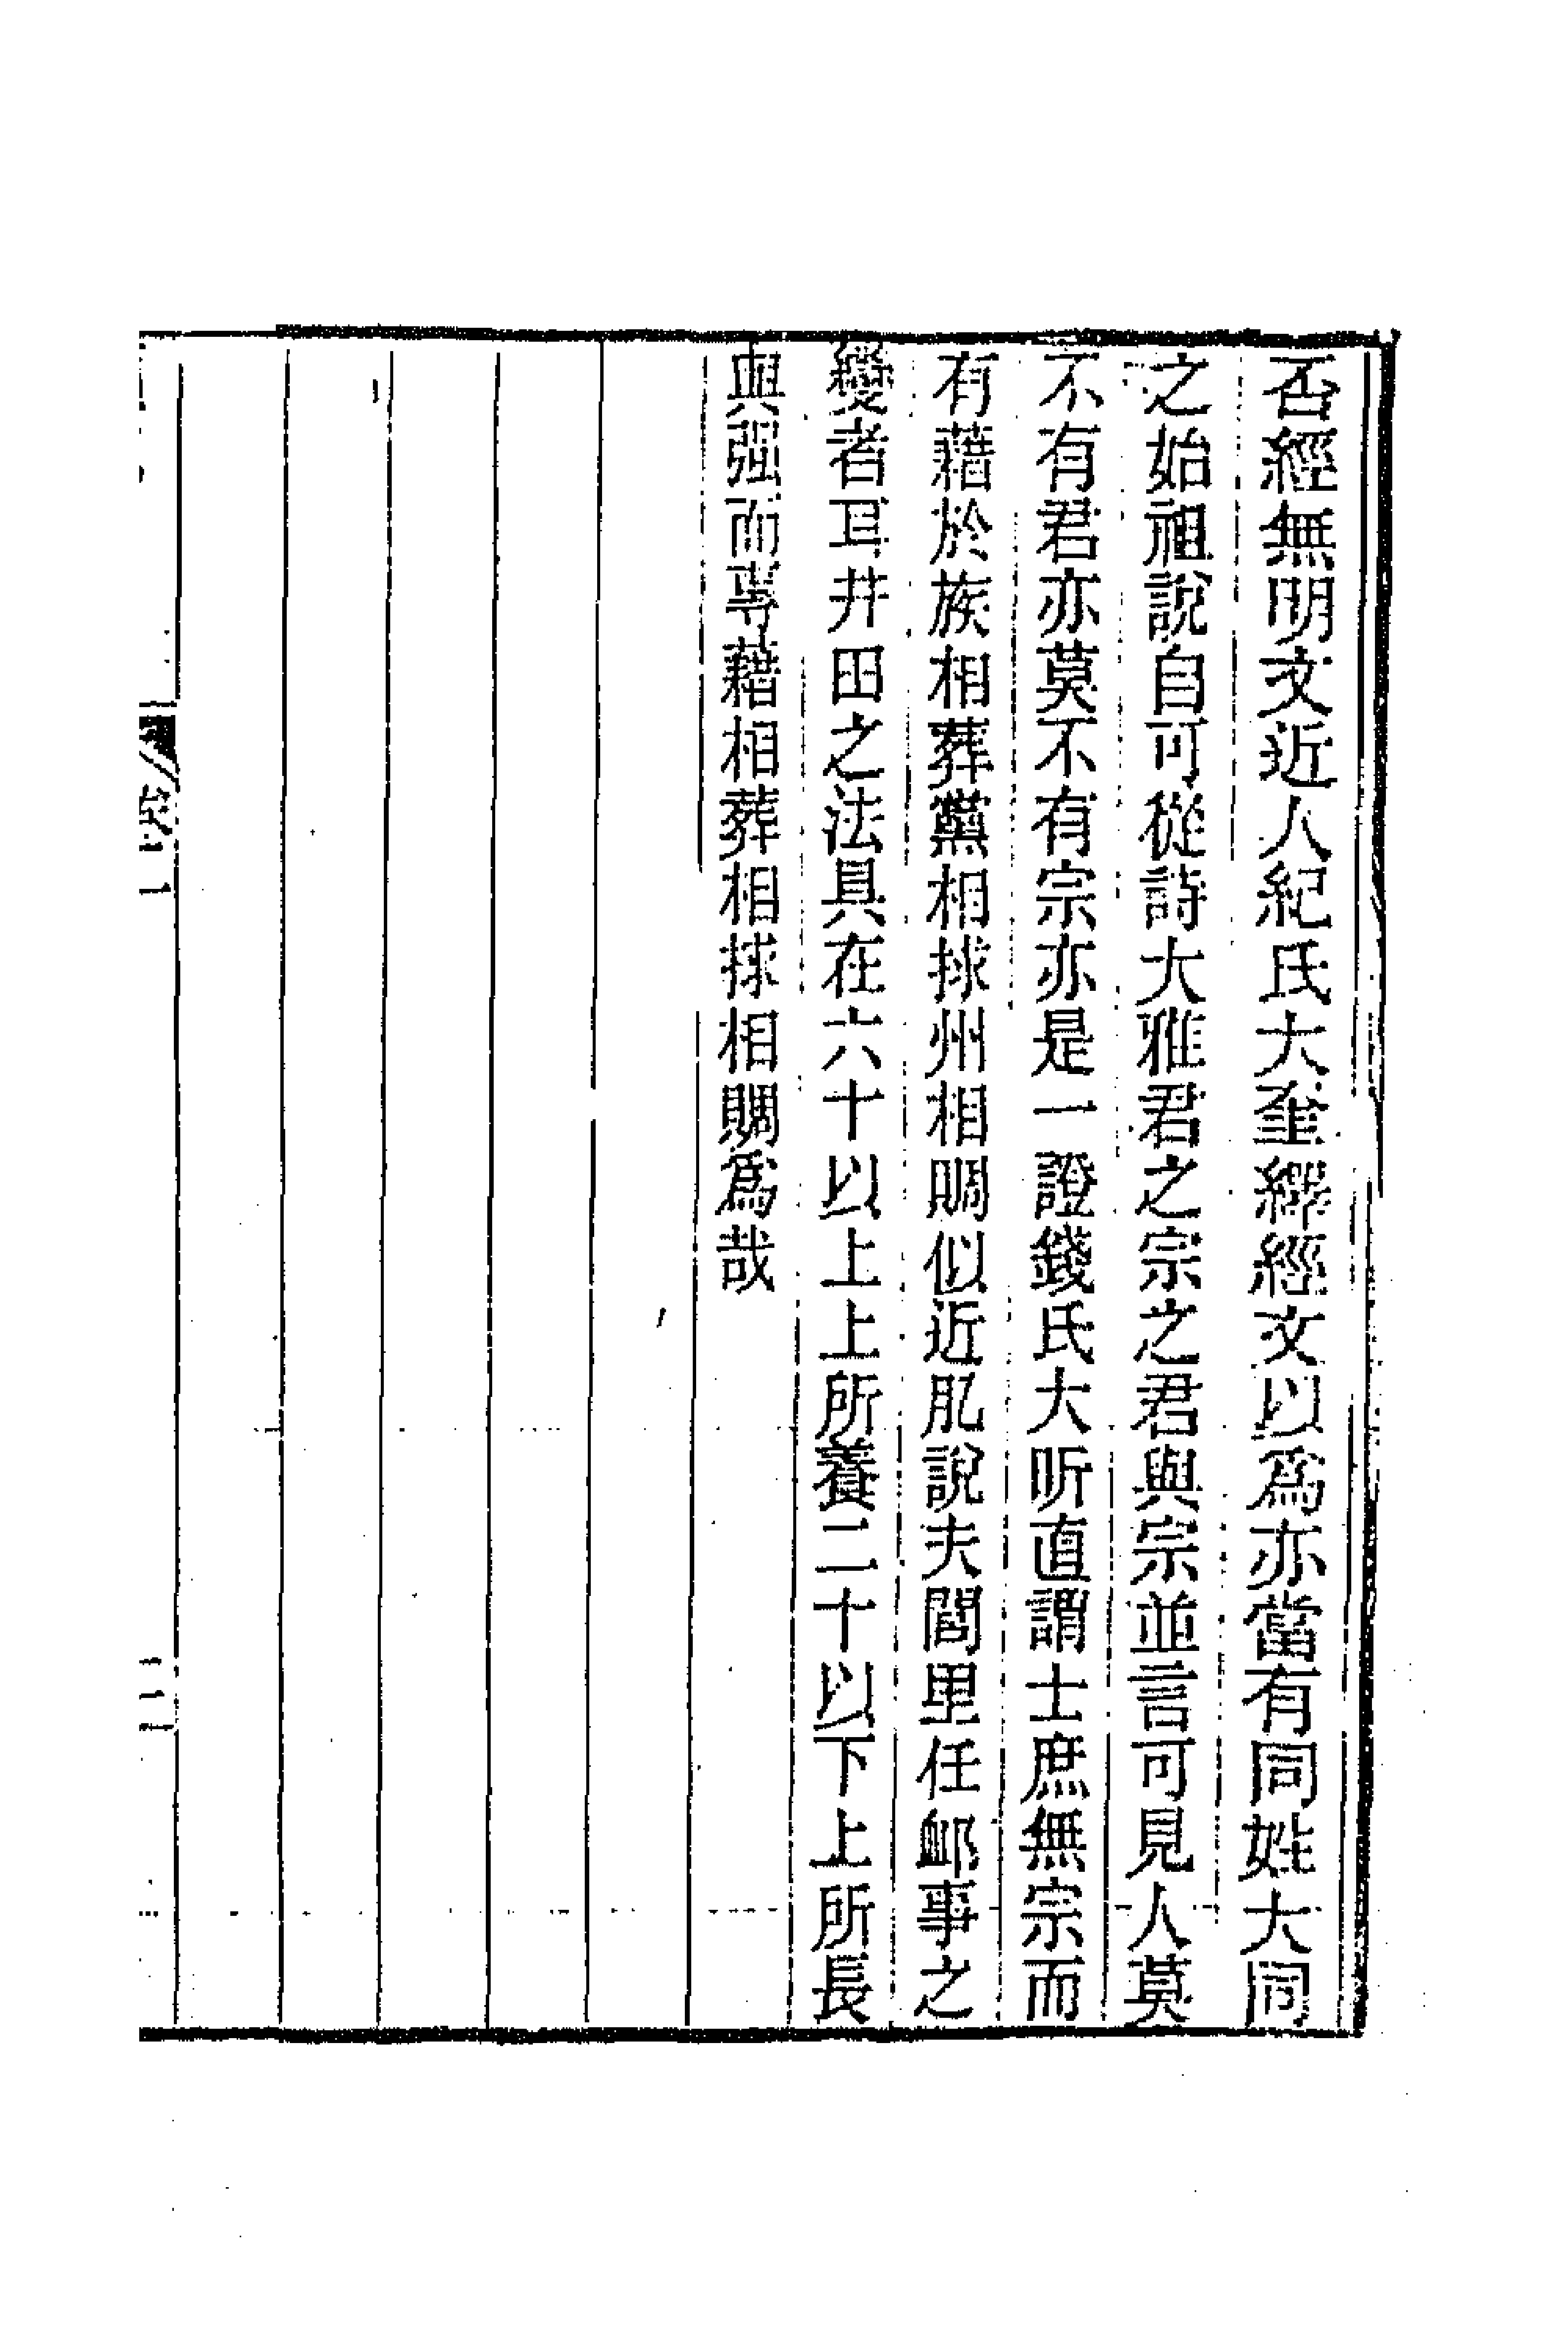 否經無明文近人紀氏大奎繹經文以爲亦當有同姓大同
之始祖說自可從詩大雅君之宗之君與宗並言可見人莫
不有君亦莫不有宗亦是一證錢氏大昕直謂士庶無宗而
有藉於族相葬黨相捄州相賙似近肊說夫閭里任卹事之
變者耳井田之法具在六十以上上所養二十以下上所長
與强而專藉相葬相捄相賙爲哉